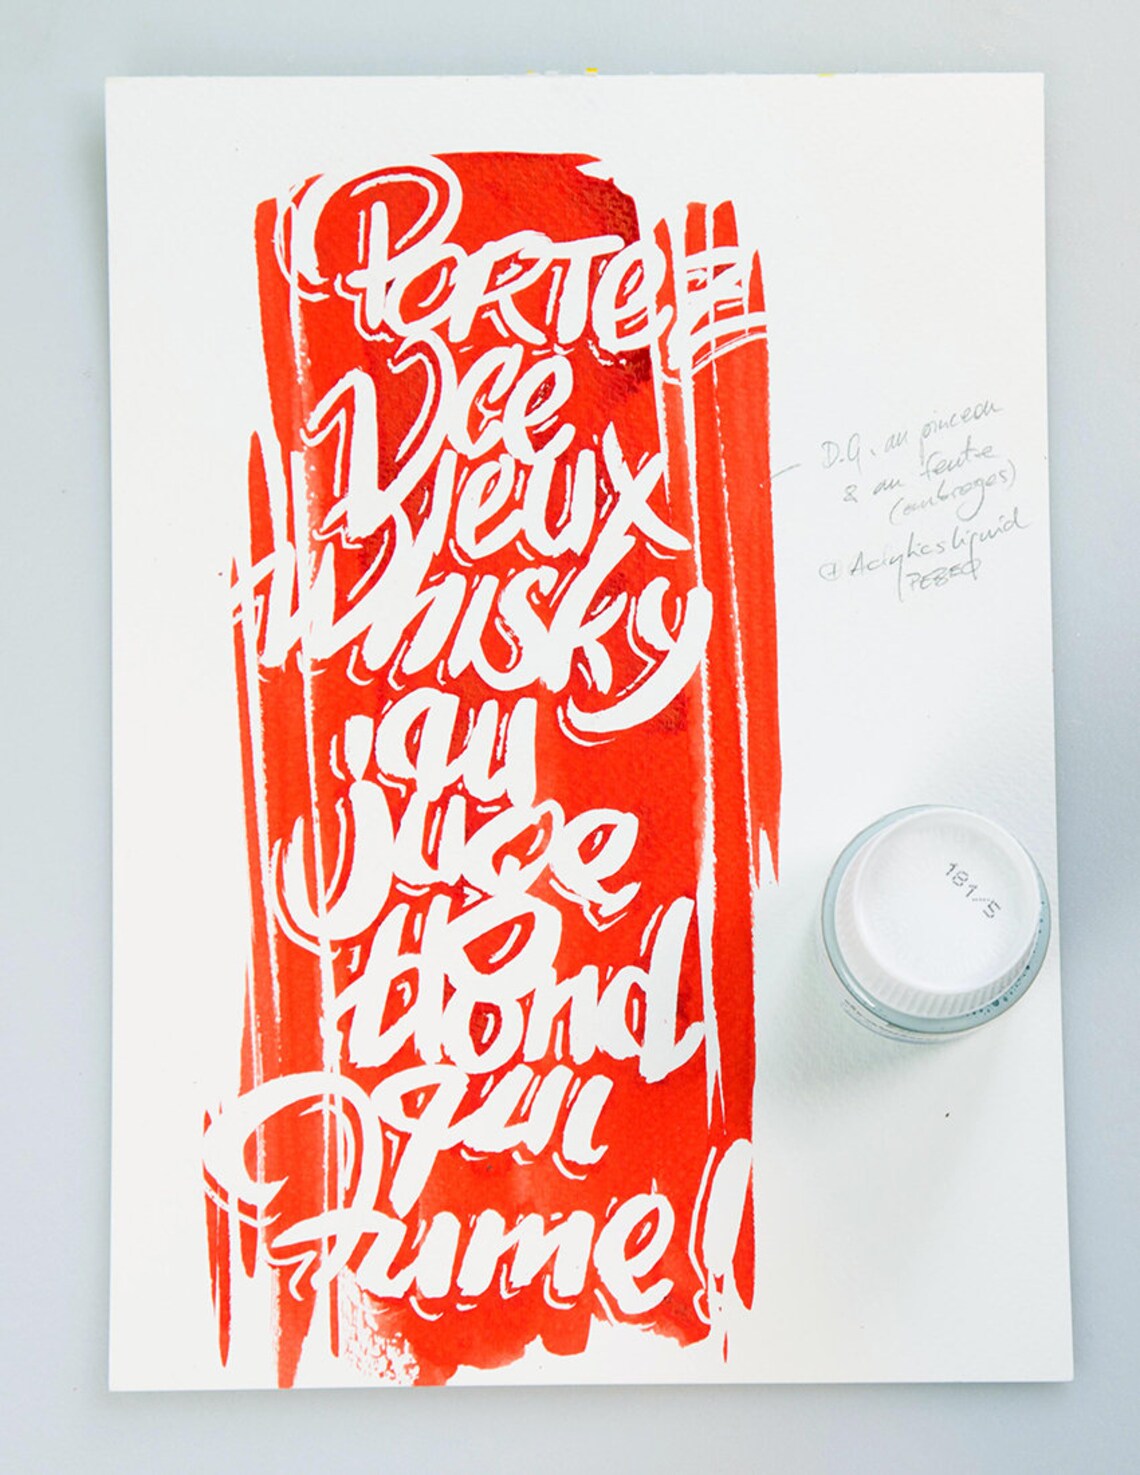 PORTEZ
ce
Vieux
Whisky
au
juge
blond
qui
Fume !
D.G. au pinceau
& au feutre
(ombrages)
+ Acrylics liquid
PEBEO